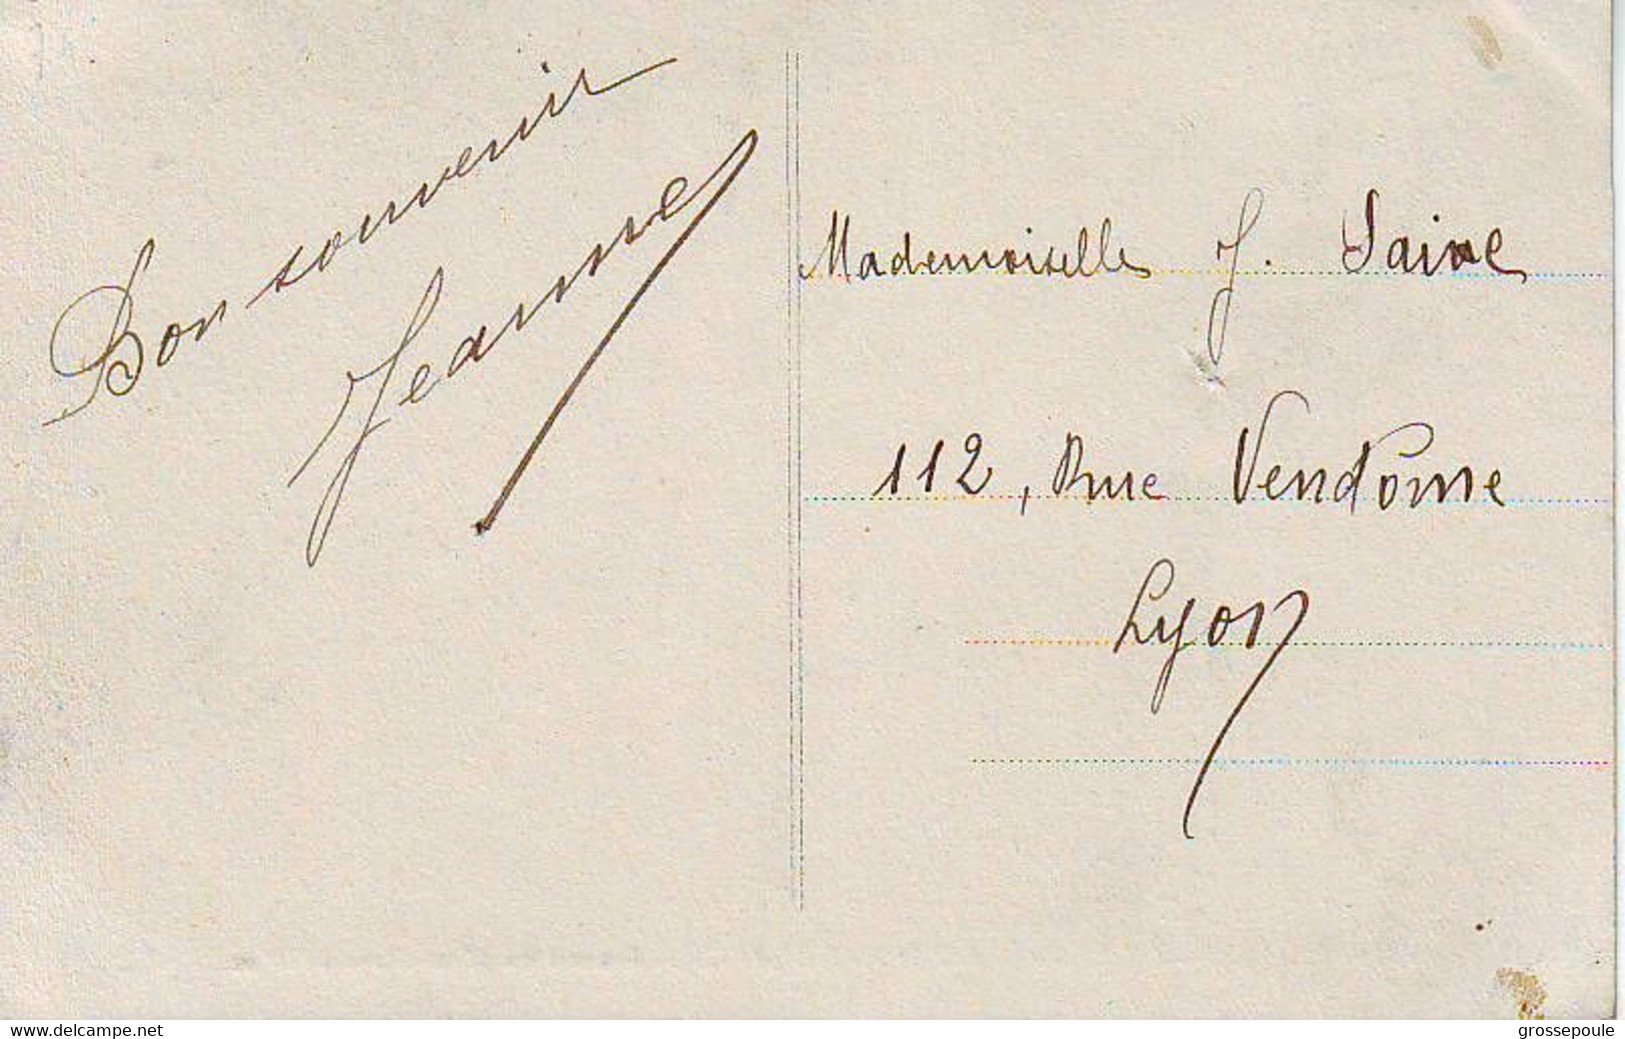 Bon souvenir
Jeanne
Mademoiselle J.
112, Rue Vendôme
Lyon
www.delcampe.net
grossepoule